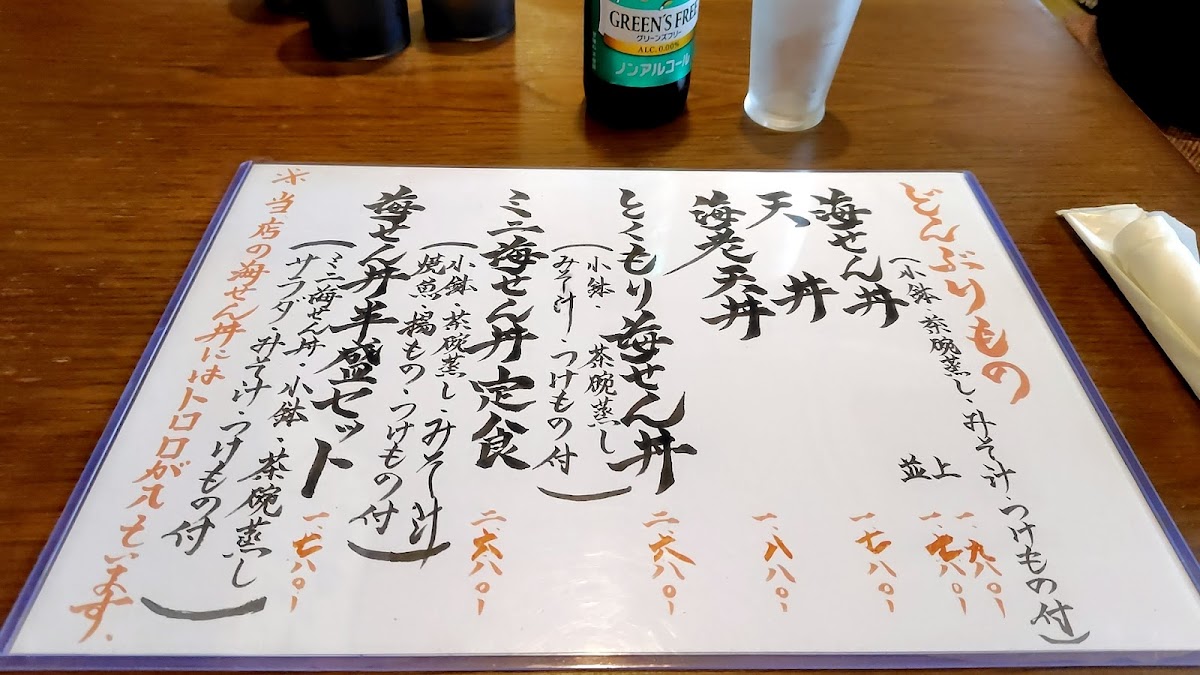 GREEN'S FREE
グリーンズフリー
ALC.0.00%
ノンアルコール
どんぶりもの
(小鉢・茶碗蒸し・みそ汁・つけもの付)
海せん丼 上 一、九八〇ー
並
天丼 一、七八〇ー
海老天丼 一、八八〇ー
とくもり海せん丼 二、六八〇ー
(小鉢・茶碗蒸し
みそ汁・つけもの付)
ミニ海せん丼定食 二、六八〇ー
(小鉢・茶碗蒸し・みそ汁
焼魚・揚もの・つけもの付)
海せん丼半盛セット 一、七八〇ー
(ミニ海せん丼・小鉢・茶碗蒸し
サラダ・みそ汁・つけもの付)
※当店の海せん丼にはトロロが入っています.